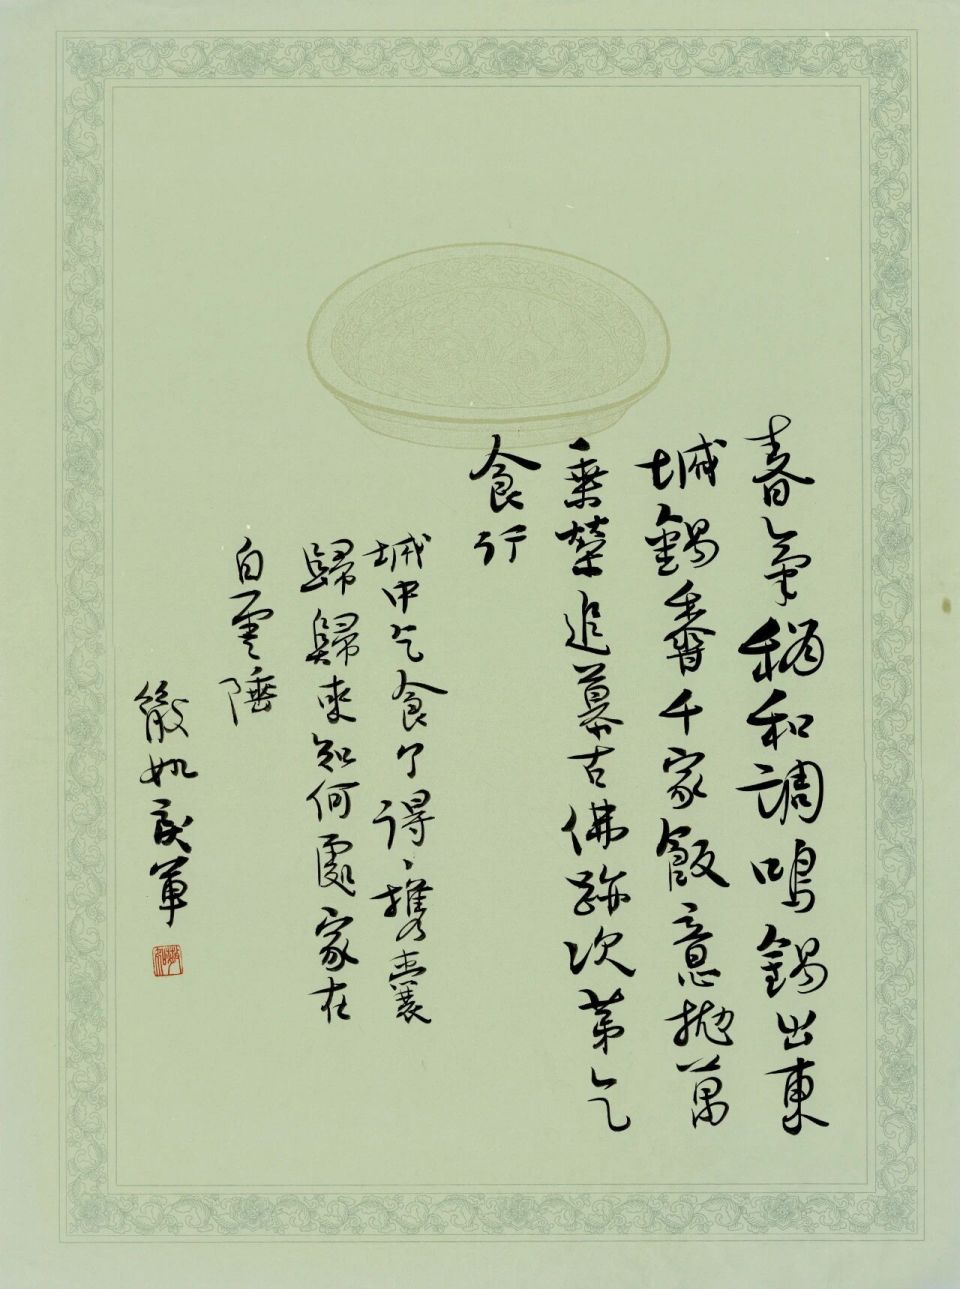 春氣稍和調鳴錫出東
城錫香千家飯意拋萬
乘榮追慕古佛跡次第乞
食行
城中乞食了得、攜囊
歸歸來知何處家在
白雲陲